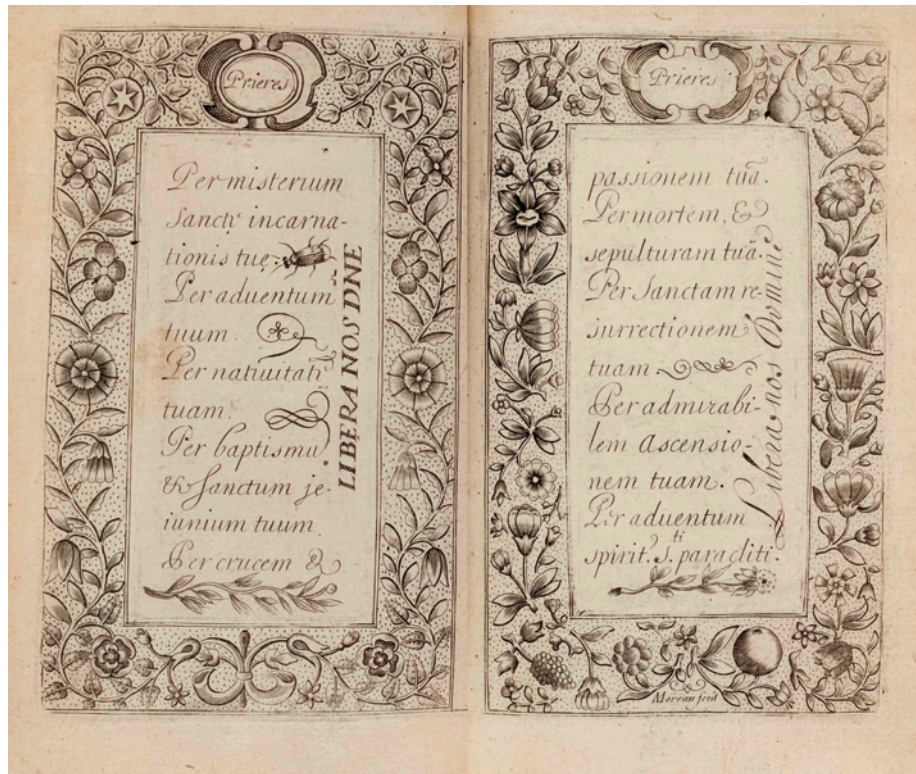 Prieres
Per misterium
Sanctę incarna-
tionis tuę.
Per aduentum
tuum.
Per natiuitatē
tuam.
Per baptismū
& Sanctum je-
iunium tuum
Per crucem &
LIBERA NOS DÑE
Prieres
passionem tuā.
Per mortem, &
sepulturam tuā.
Per Sanctam re-
surrectionem
tuam
Per admirabi-
lem Ascensio-
nem tuam.
Per aduentum
spirit.9 S.ti paracliti.
Libera nos Domine
Moreau fecit